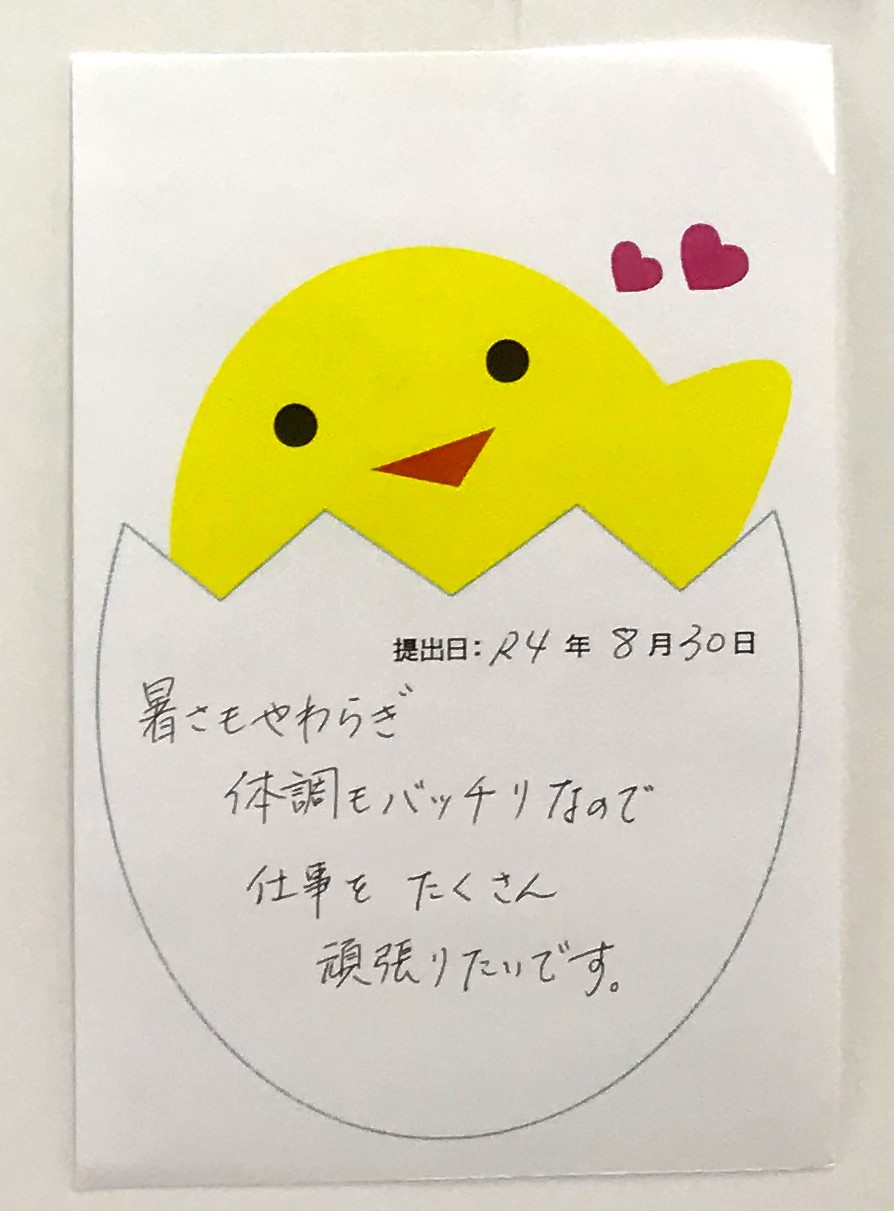 提出日：R4年 8月30日
暑さもやわらぎ
体調もバッチリなので
仕事を たくさん
頑張りたいです。